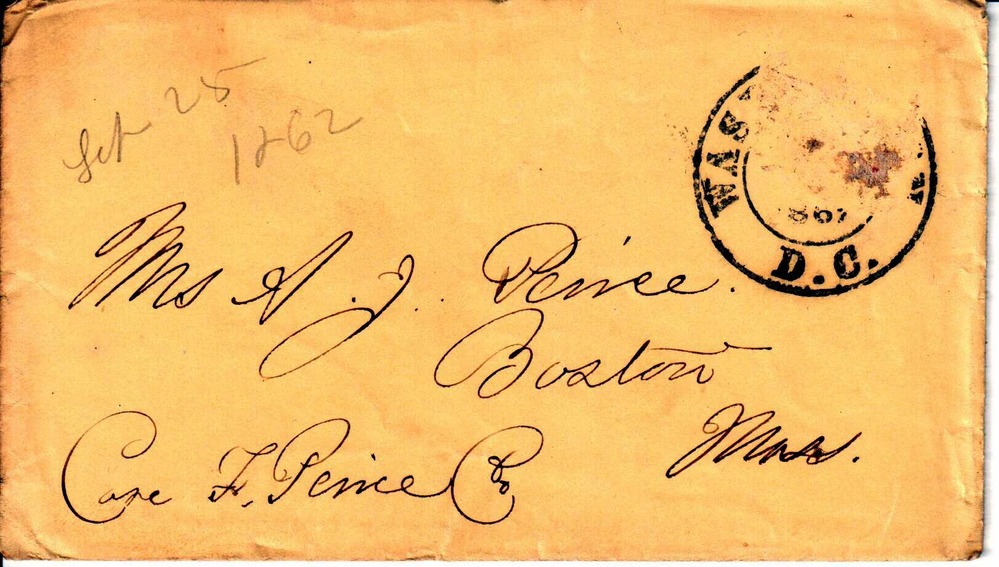 Sep 25
1862
WAS
186
D.C.
Mrs A. J. Peirce.
Boston
Mass.
Care F. Peirce Co